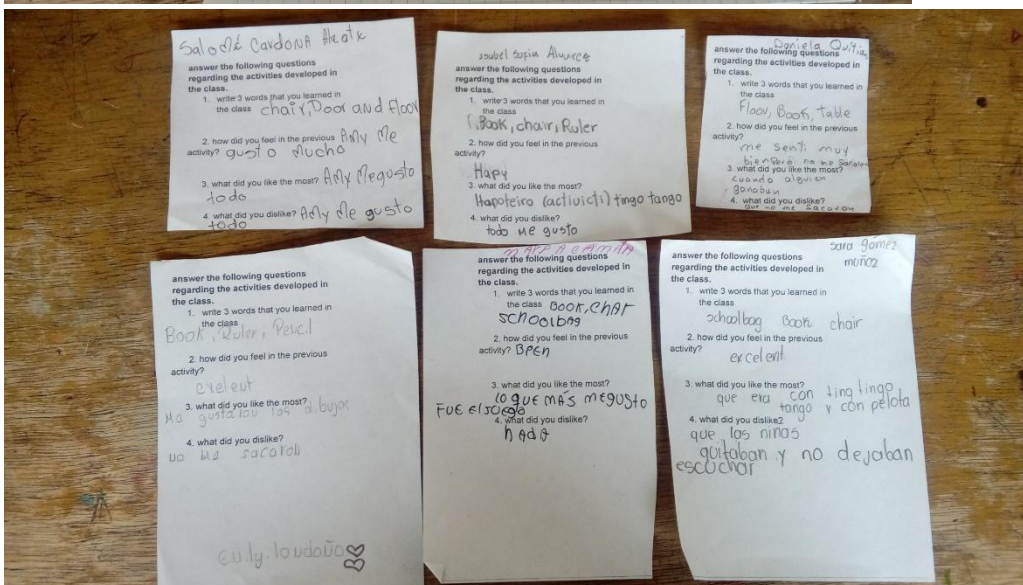 Salomé Cardona Alzate
answer the following questions
regarding the activities developed in
the class.
1. write 3 words that you learned in
the class chair, Door and Floor
2. how did you feel in the previous Amy Me
activity? gusto Mucho
3. what did you like the most? Amy Megusto
todo
4. what did you dislike? Amy Me gusto
todo
Isabel Sofia
answer the following questions
regarding the activities developed in
the class.
1. write 3 words that you learned in
the class
Book, chair, Ruler
2. how did you feel in the previous
activity?
Hapy
3. what did you like the most?
(activicti) tingo tango
4. what did you dislike?
todo me gusto
Daniela
answer the following questions
regarding the activities developed in
the class.
1. write 3 words that you learned in
the class
Floor, Book, table
2. how did you feel in the previous
activity?
me senti muy
no me Sacaron
3. what did you like the most?
cuando alguien
ganaban
4. what did you dislike?
que no me sacaron
answer the following questions
regarding the activities developed in
the class.
1. write 3 words that you learned in
the class
Book, Ruler, Pencil
2. how did you feel in the previous
activity?
exelent
3. what did you like the most?
los dibujos
4. what did you dislike?
no me sacaron
emily londoño
answer the following questions
regarding the activities developed in
the class.
1. write 3 words that you learned in
the class BOOK, CHAR
SCHOOLBAG
2. how did you feel in the previous
activity? BPEN
3. what did you like the most?
lo QUE MÁS MEGUSTO
FUE El JUEGO
4. what did you dislike?
nada
sara gómez
muñoz
answer the following questions
regarding the activities developed in
the class.
1. write 3 words that you learned in
the class
schoolbag Book chair
2. how did you feel in the previous
activity?
excelent
3. what did you like the most?
que era con ting tingo
tango y con pelota
4. what did you dislike?
que las niñas
gritaban y no dejaban
escuchar